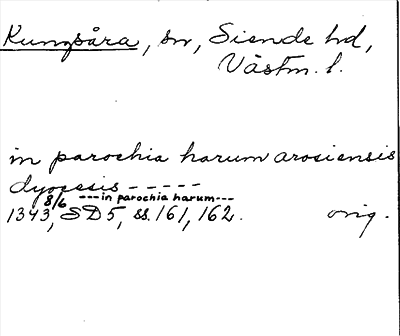 Kungsåra, sn, Siende hd,
Västm. l.
in parochia harum arosiensis
dyocesis - - - - -
8/6 ---in parochia harum---
1343, SD 5, ss. 161, 162. orig.